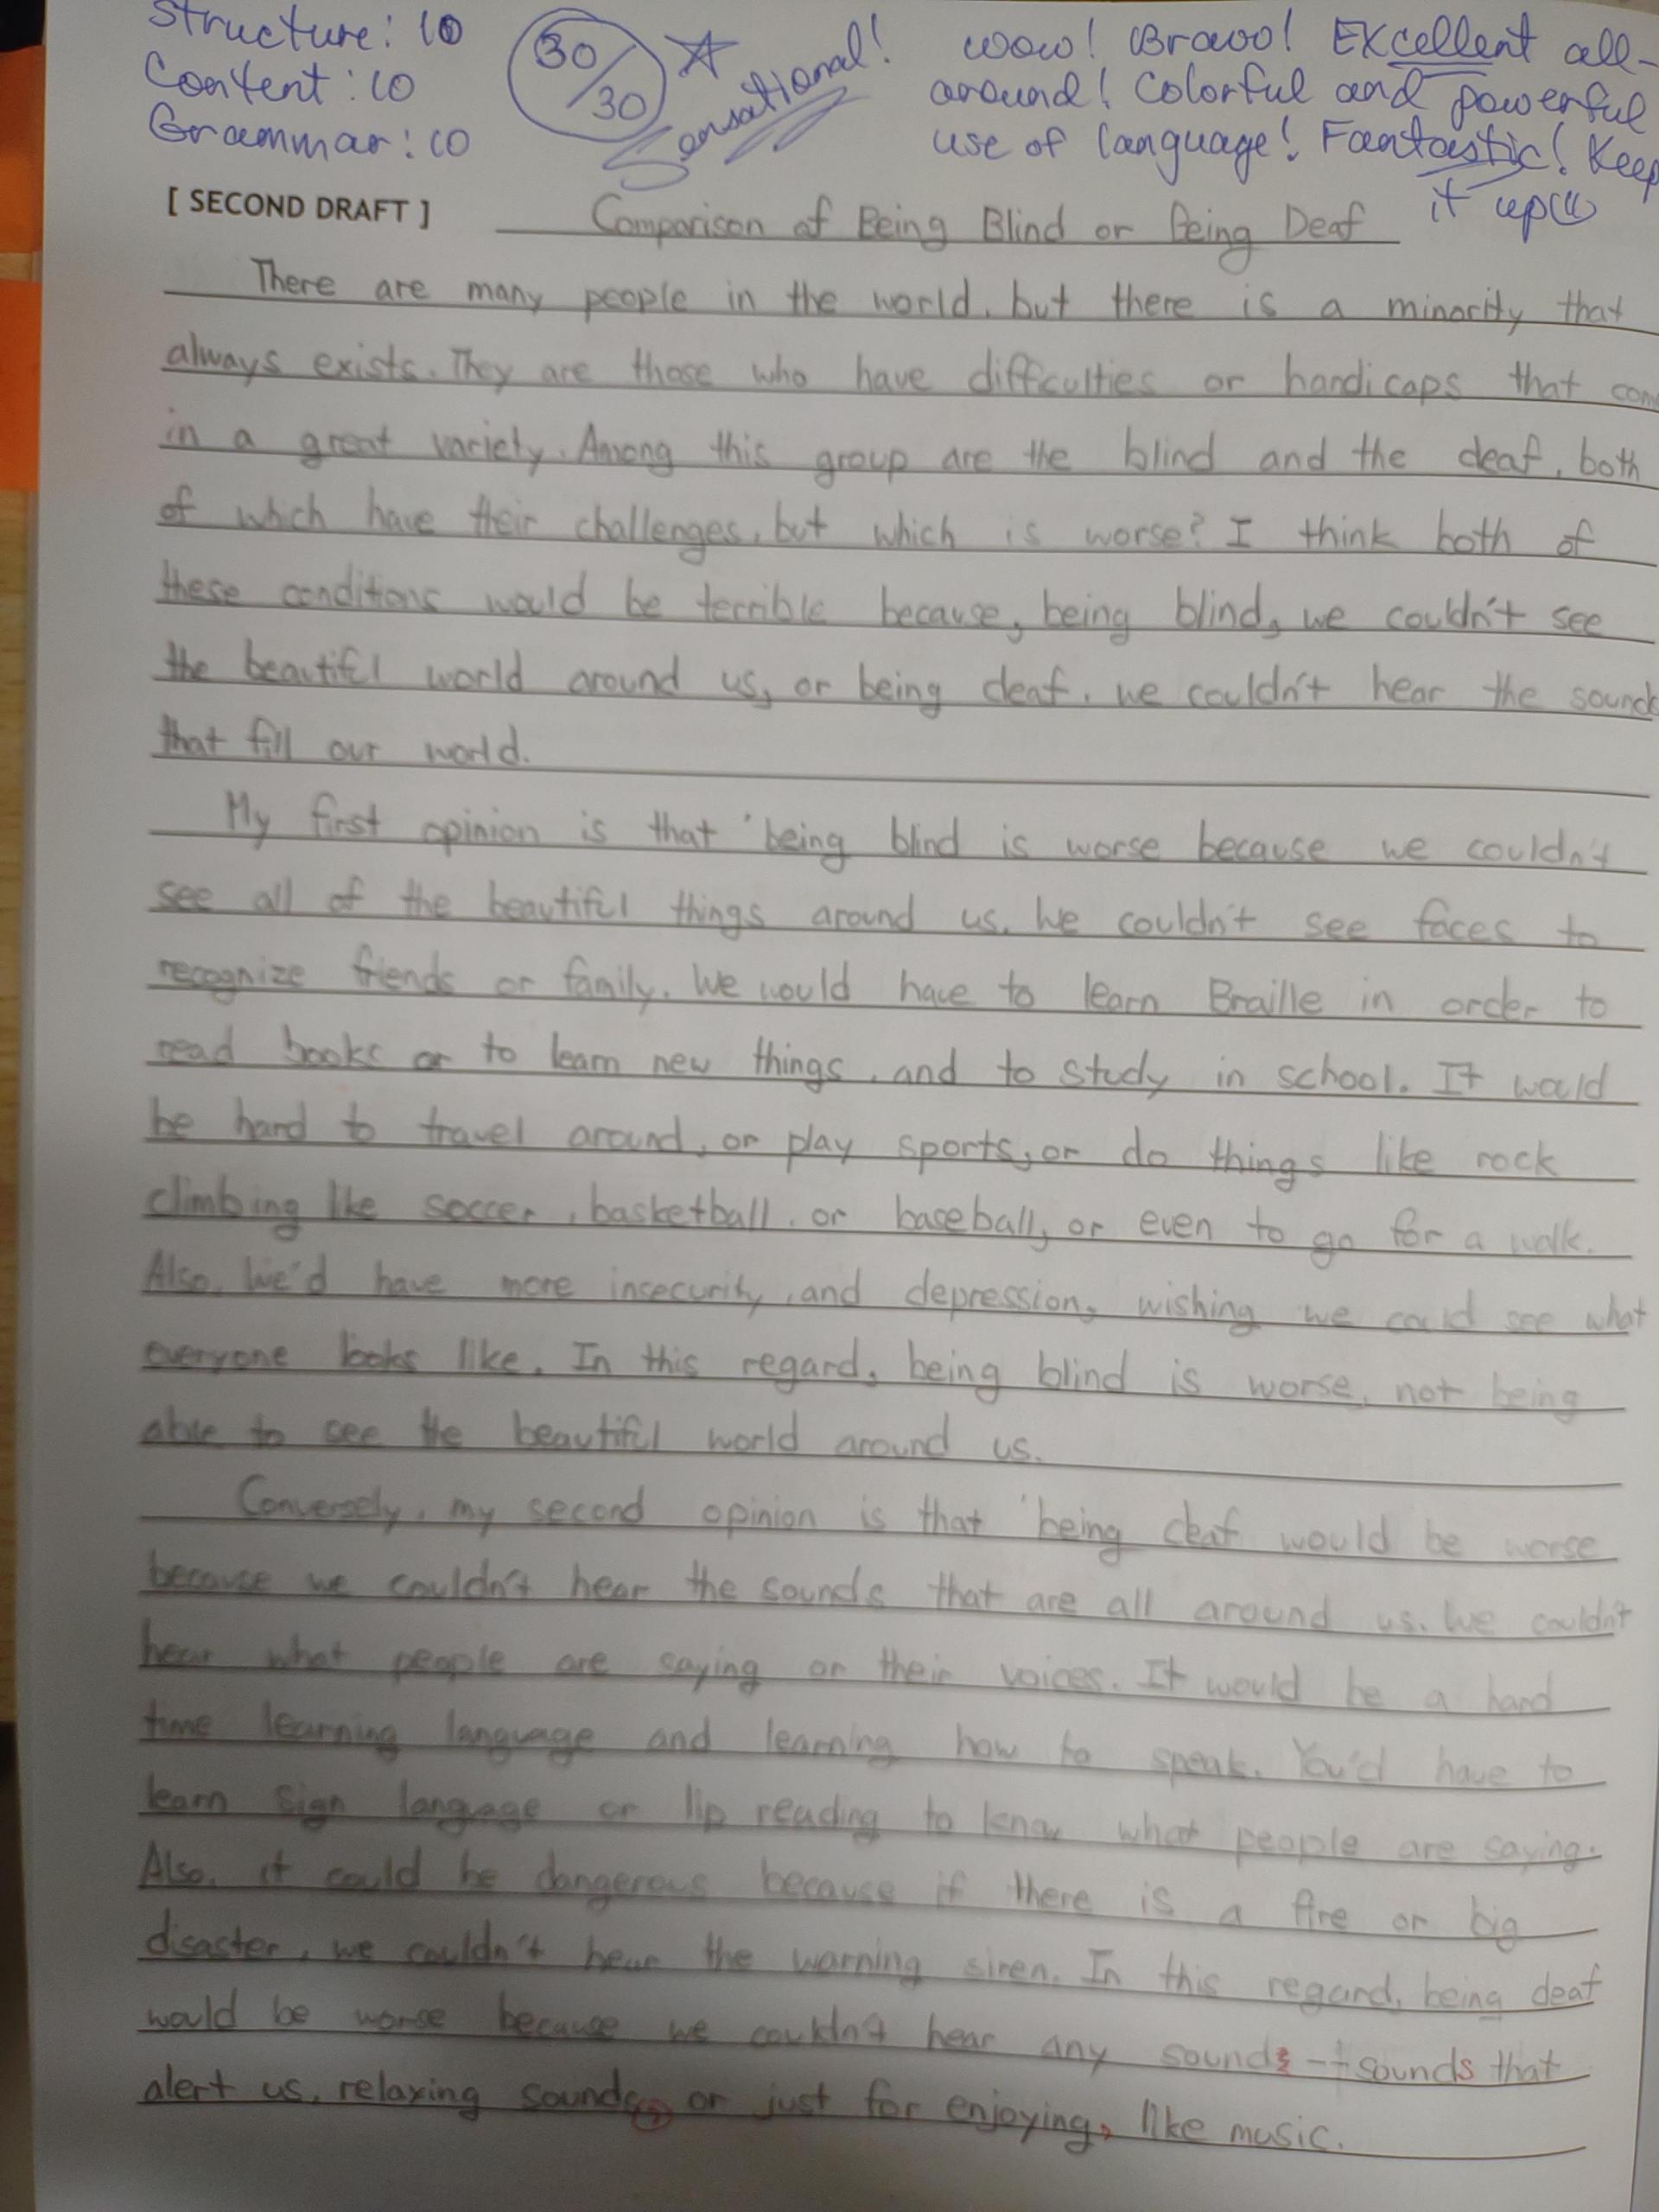 Structure: 10
Content: 10
Grammar: 10
30/30
Sensational!
Wow! Bravo! Excellent all-
around! Colorful and powerful
use of language! Fantastic! Keep
it up
[ SECOND DRAFT ] Comparison of Being Blind or Being Deaf
There are many people in the world, but there is a minority that
always exists. They are those who have difficulties or handicaps that
in a great variety. Among this group are the blind and the deaf, both
of which have their challenges, but which is worse? I think both of
these conditions would be terrible because, being blind, we couldn't see
the beautiful world around us, or being deaf, we couldn't hear the sounds
that fill our world.
My first opinion is that being blind is worse because we couldn't
see all of the beautiful things around us. We couldn't see faces to
recognize friends or family. We would have to learn Braille in order to
read books or to learn new things, and to study in school. It would
be hard to travel around, or play sports, or do things like rock
climbing like soccer, basketball, or baseball, or even to go for a walk.
Also, We'd have more insecurity, and depression, wishing we could see what
everyone looks like. In this regard, being blind is worse, not being
able to see the beautiful world around us.
Conversely, my second opinion is that being deaf would be worse
because we couldn't hear the sounds that are all around us. We couldn't
hear what people are saying or their voices. It would be a hard
time learning language and learning how to speak. You'd have to
learn sign language or lip reading to know what people are saying.
Also, it could be dangerous because if there is a fire or big
disaster, we couldn't hear the warning siren. In this regard, being deaf
would be worse because we couldn't hear any sounds - sounds that
alert us, relaxing sounds, or just for enjoying, like music.